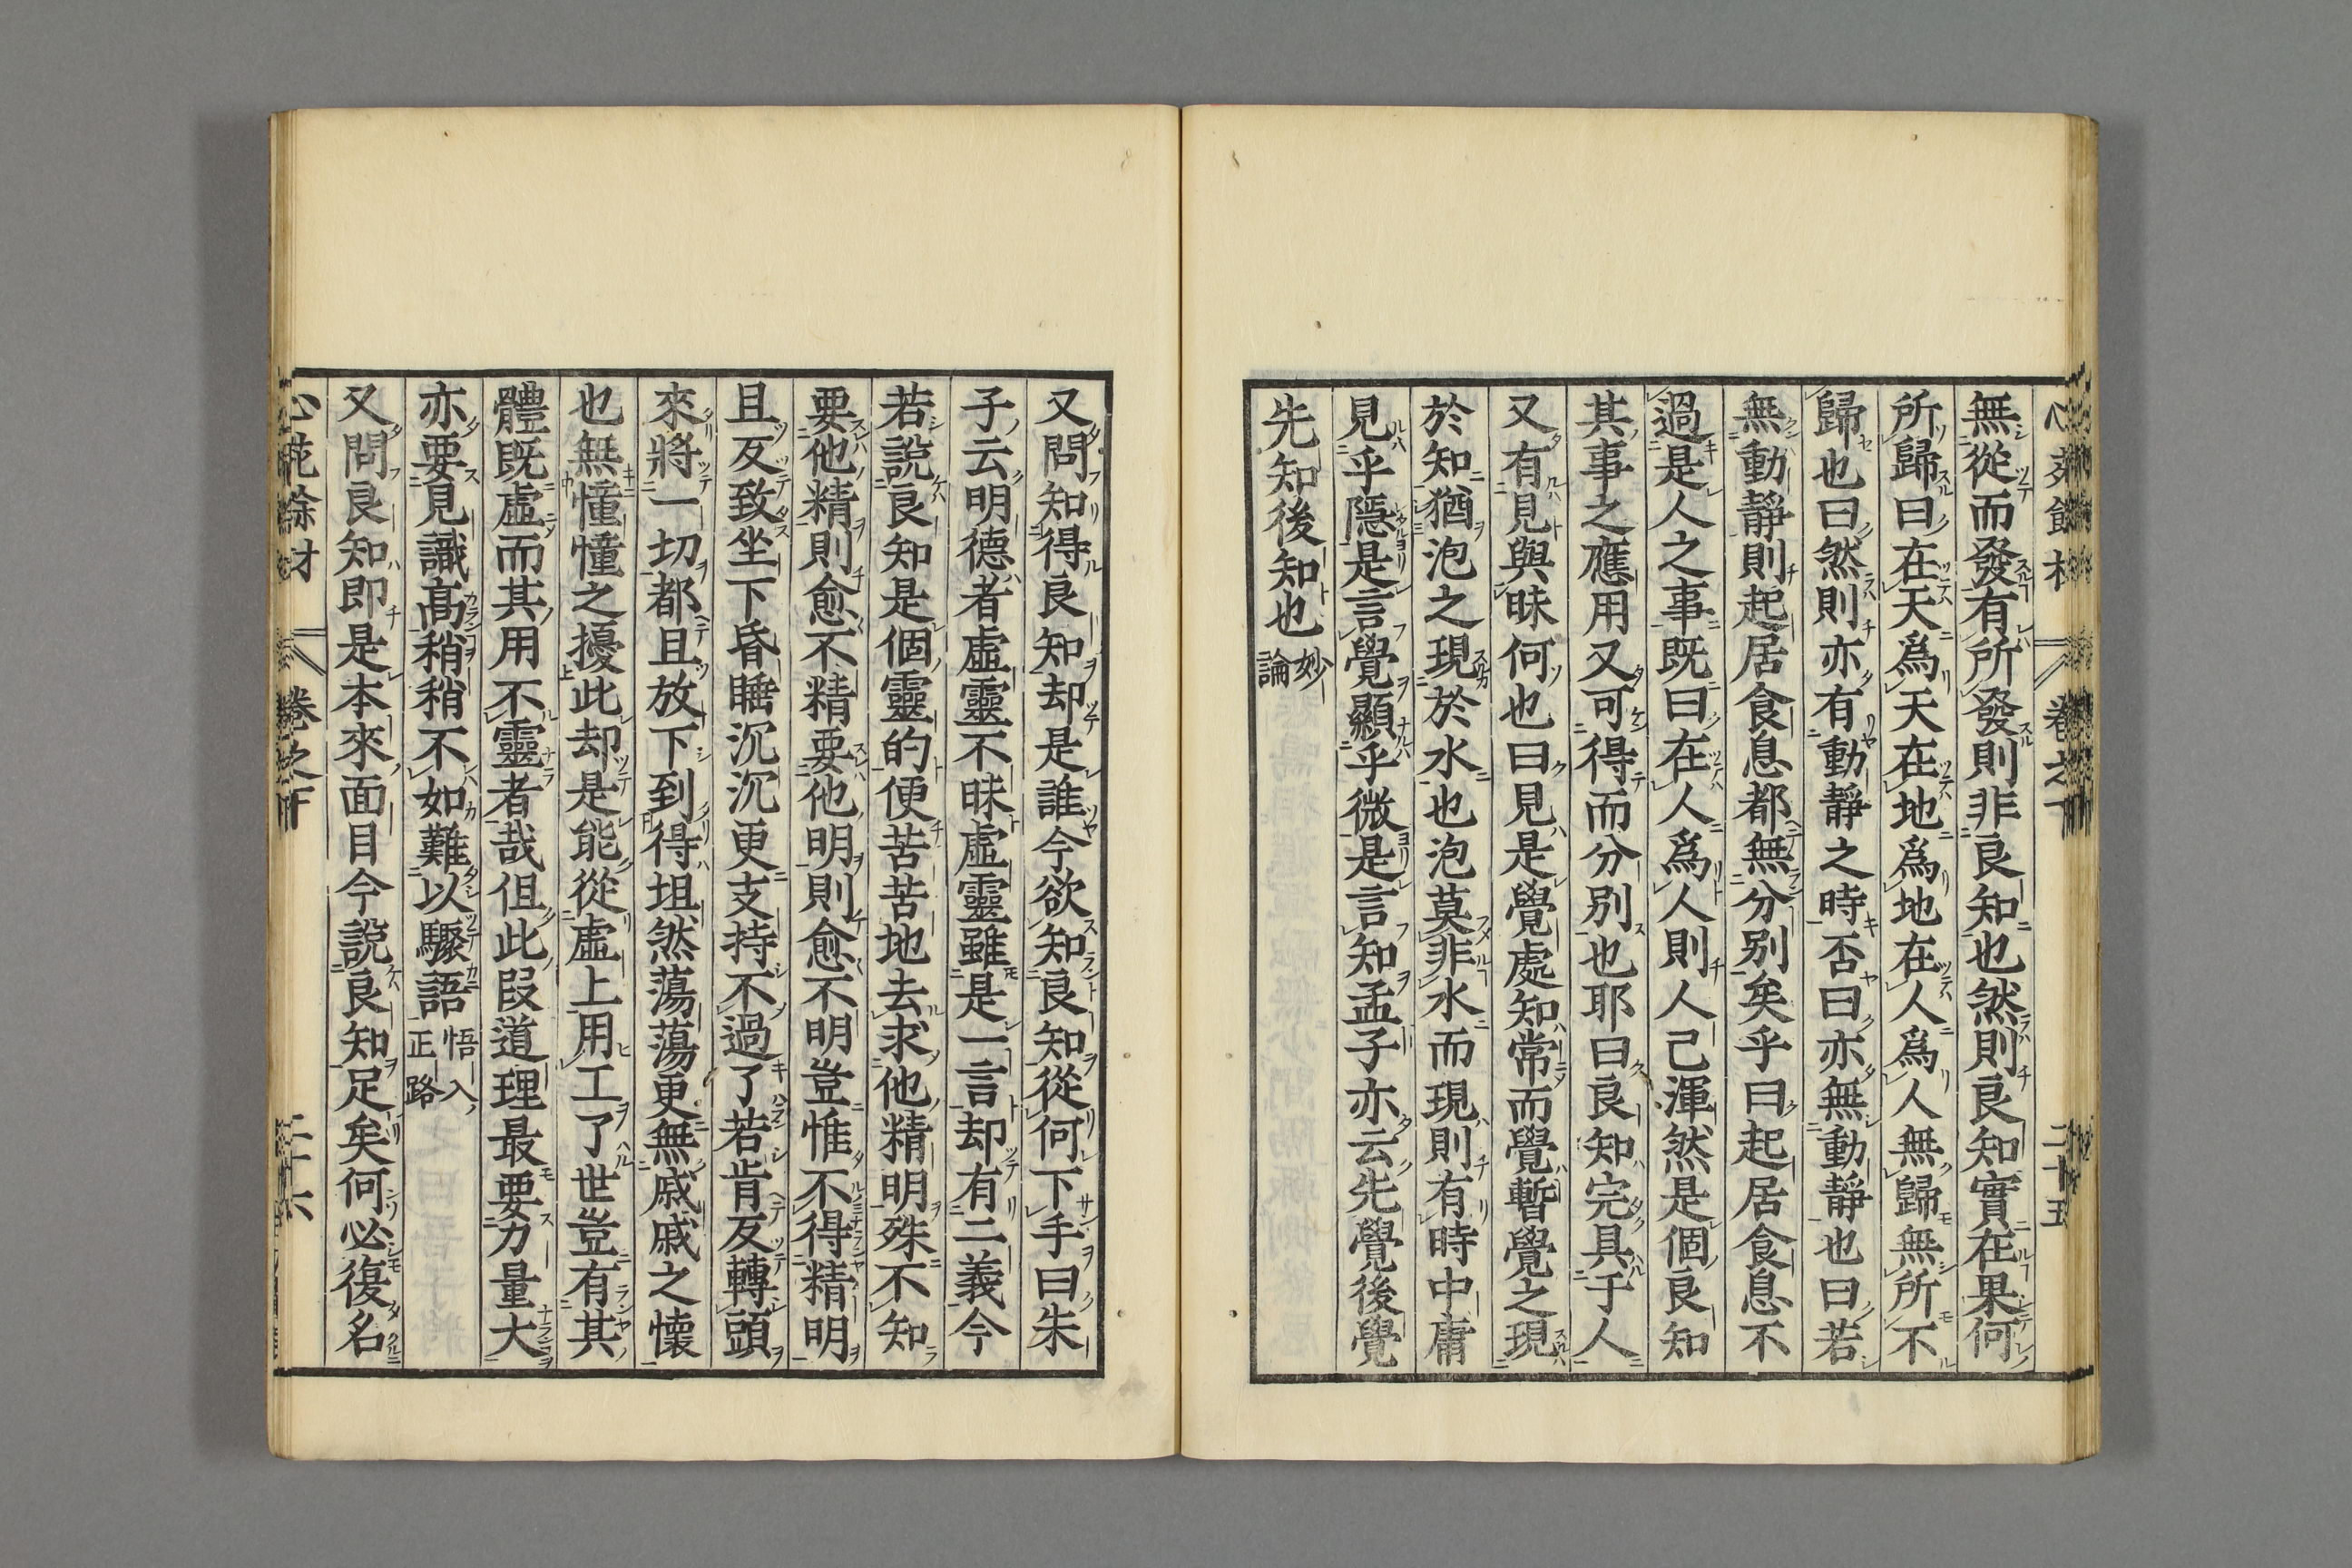 無從而發有所發則非良知也然則良知實在果何
所歸曰在天爲天在地爲地在人爲人無歸無所不
歸也曰然則亦有動靜之時否曰亦無動靜也曰若
無動靜則起居食息都無分別矣乎曰起居食息不
過是人之事既曰在人爲人則人己渾然是個良知
其事之應用又可得而分別也耶曰良知完具于人
又有見與昧何也曰見是覺處知常而覺暫覺之現
於知猶泡之現於水也泡莫非水而現則有時中庸
見乎隱是言覺顯乎微是言知孟子亦云先覺後覺
先知後知也 妙論
又問知得良知却是誰今欲知良知從何下手曰朱
子云明德者虛靈不昧虛靈雖是一言却有二義今
若說良知是個靈的便苦苦地去求他精明殊不知
要他精則愈不精要他明則愈不明豈惟不得精明
且反致坐下昏睡沉沉更支持不過了若肯反轉頭
來將一切都且放下到得坦然蕩蕩更無戚戚之懷
也無憧憧之擾此却是能從虛上用工了世豈有其
體既虛而其用不靈者哉但此段道理最要力量大
亦要見識高稍稍不如難以驟語 悟入正路
又問良知即是本來面目今說良知足矣何必復名
卷之下 二十六